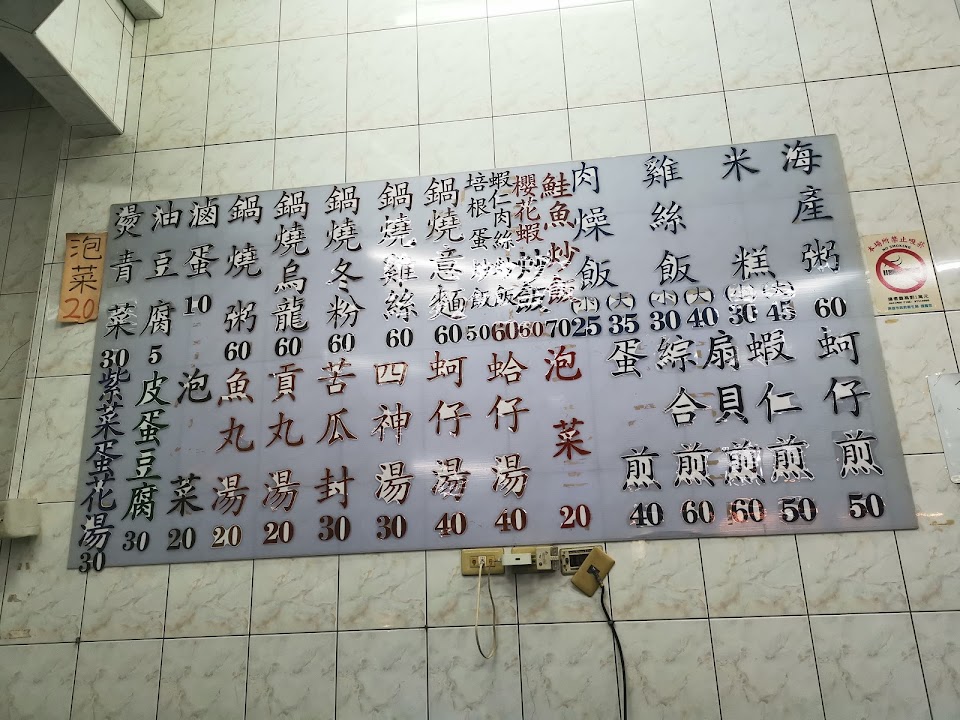 海產粥60
米糕(小)30(大)45
雞絲飯(小)30(大)40
肉燥飯(小)25(大)35
鮭魚炒飯70
櫻花蝦炒飯60
蝦仁肉絲炒飯60
培根蛋炒飯50
鍋燒意麵60
鍋燒雞絲60
鍋燒冬粉60
鍋燒烏龍60
鍋燒粥60
滷蛋10
油豆腐5
燙青菜30
蚵仔煎50
蝦仁煎50
扇貝煎60
綜合煎60
蛋煎40
泡菜20
蛤仔湯40
蚵仔湯40
四神湯30
苦瓜封30
貢丸湯20
魚丸湯20
泡菜20
皮蛋豆腐30
紫菜蛋花湯30
泡菜20
本場所禁止吸菸
NO SMOKING